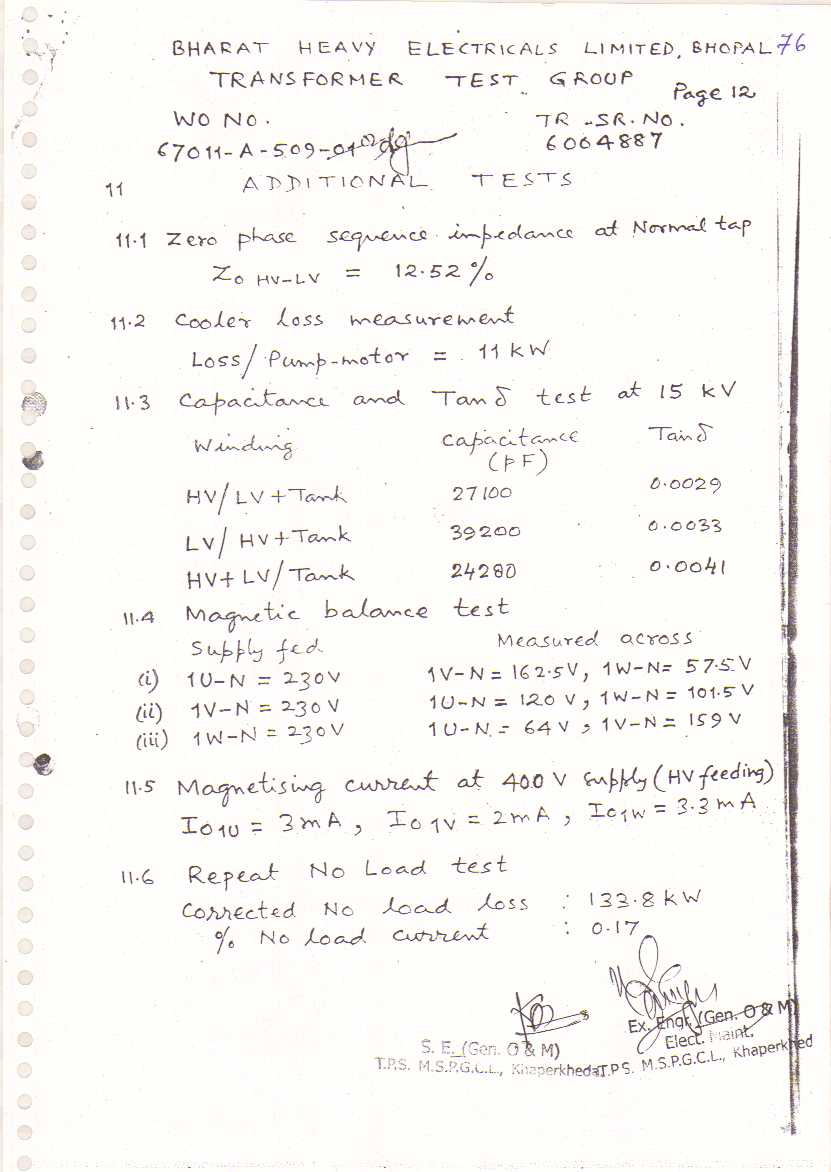 BHARAT HEAVY ELECTRICALS LIMITED, BHOPAL 76
TRANSFORMER TEST GROUP
Page 12
WO NO. TR. SR. NO.
67011-A-509-01 6004887
11 ADDITIONAL TESTS
11.1 Zero phase sequence impedance at Normal tap
Zo HV-LV = 12.52 %
11.2 Cooler loss measurement
Loss/ Pump-motor = 11 kW
11.3 Capacitance and Tan δ test at 15 kV
Winding Capacitance Tan δ
(pF)
HV/ LV + Tank 27100 0.0029
LV/ HV + Tank 39200 0.0033
HV+ LV/ Tank 24280 0.0041
11.4 Magnetic balance test
Supply fed Measured across
(i) 1U-N = 230V 1V-N = 162.5V, 1W-N= 57.5 V
(ii) 1V-N = 230V 1U-N = 120 V, 1W-N = 101.5 V
(iii) 1W-N = 230V 1U-N = 64 V, 1V-N = 159 V
11.5 Magnetising current at 400 V supply (HV feeding)
Io1U = 3mA, Io1V = 2mA, Io1W = 3.3 mA
11.6 Repeat No Load test
Corrected No load loss : 133.8 kW
% No load current : 0.17
S. E. (Gen. O & M)
T.P.S. M.S.P.G.C.L., Khaperkheda
Ex. Engr. (Gen. O & M)
Elect. Maint.
T.P S. M.S.P.G.C.L., Khaperkhed